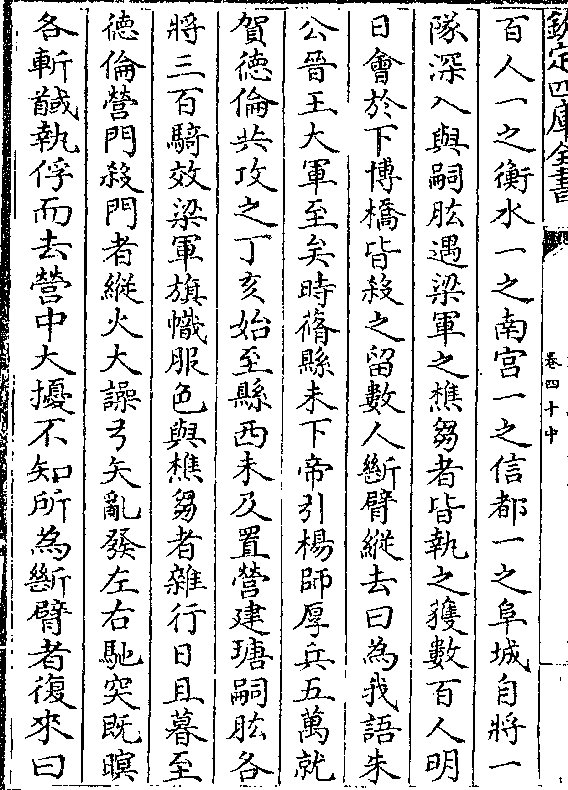 欽定四庫全書
卷四十中
百人一之衡水一之南宮一之信都一之阜城自將一
隊深入與嗣肱遇梁軍之樵芻者皆執之獲數百人明
日會於下博橋皆殺之留數人斷臂縱去曰為我語朱
公晉王大軍至矣時蓨縣未下帝引楊師厚兵五萬就
賀徳倫共攻之丁亥始至縣西未及置營建瑭嗣肱各
將三百騎效梁軍旗幟服色與樵芻者雜行日且暮至
徳倫營門殺門者縱火大譟弓矢亂發左右馳突既暝
各斬馘執俘而去營中大擾不知所為斷臂者復來曰